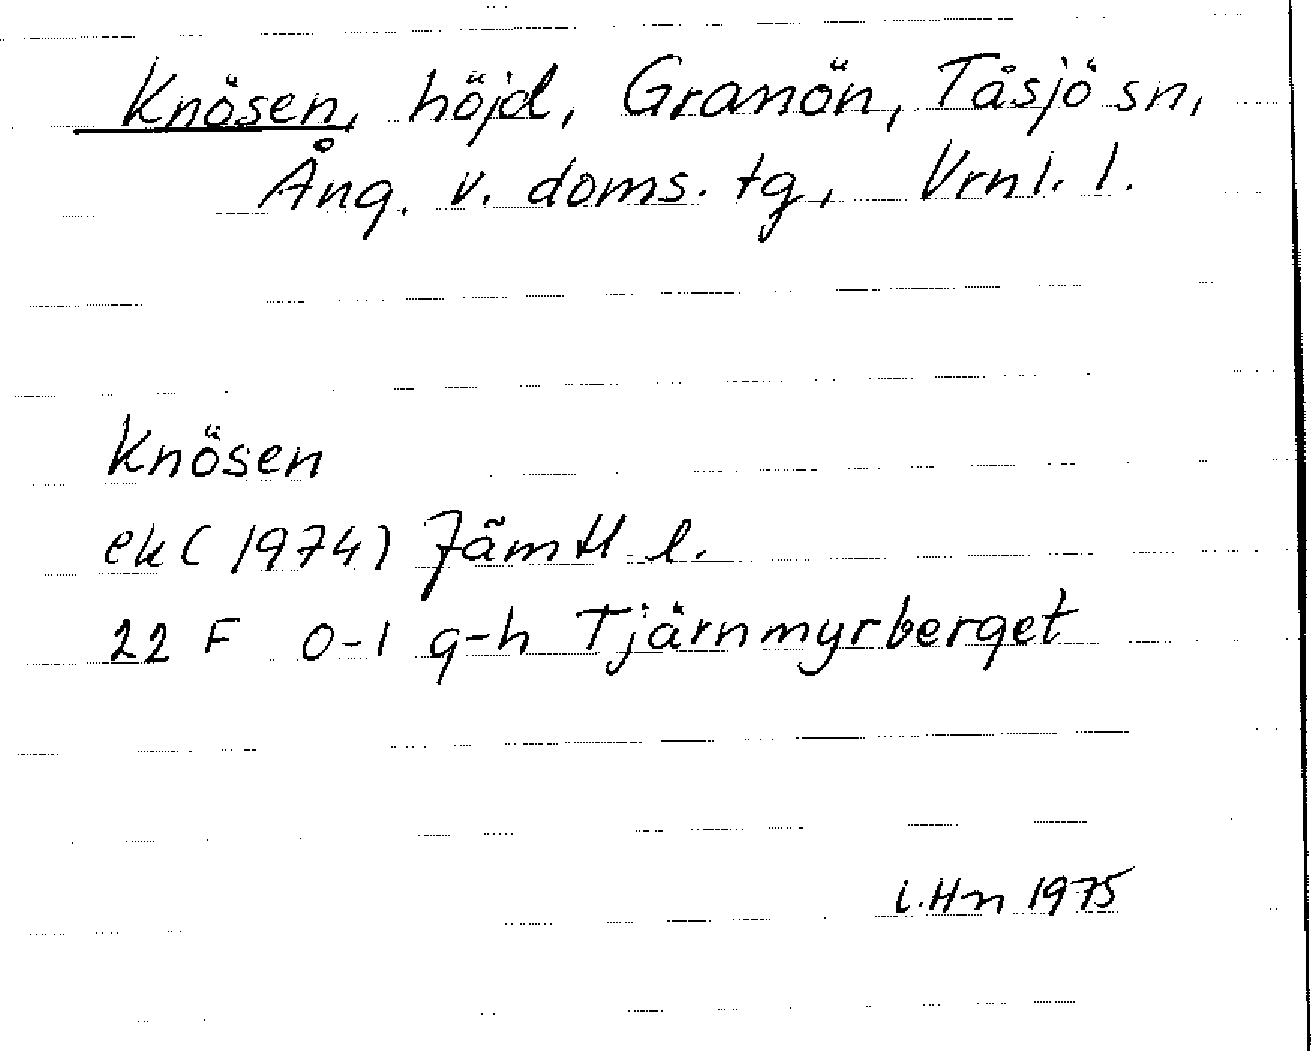 Knösen, höjd, Granön, Tåsjö sn,
Ång. v. doms. tg, Vrnl. l.
Knösen
ek (1974) Jämtl l.
22 F 0-1 g-h Tjärnmyrberget
l.Hn 1975